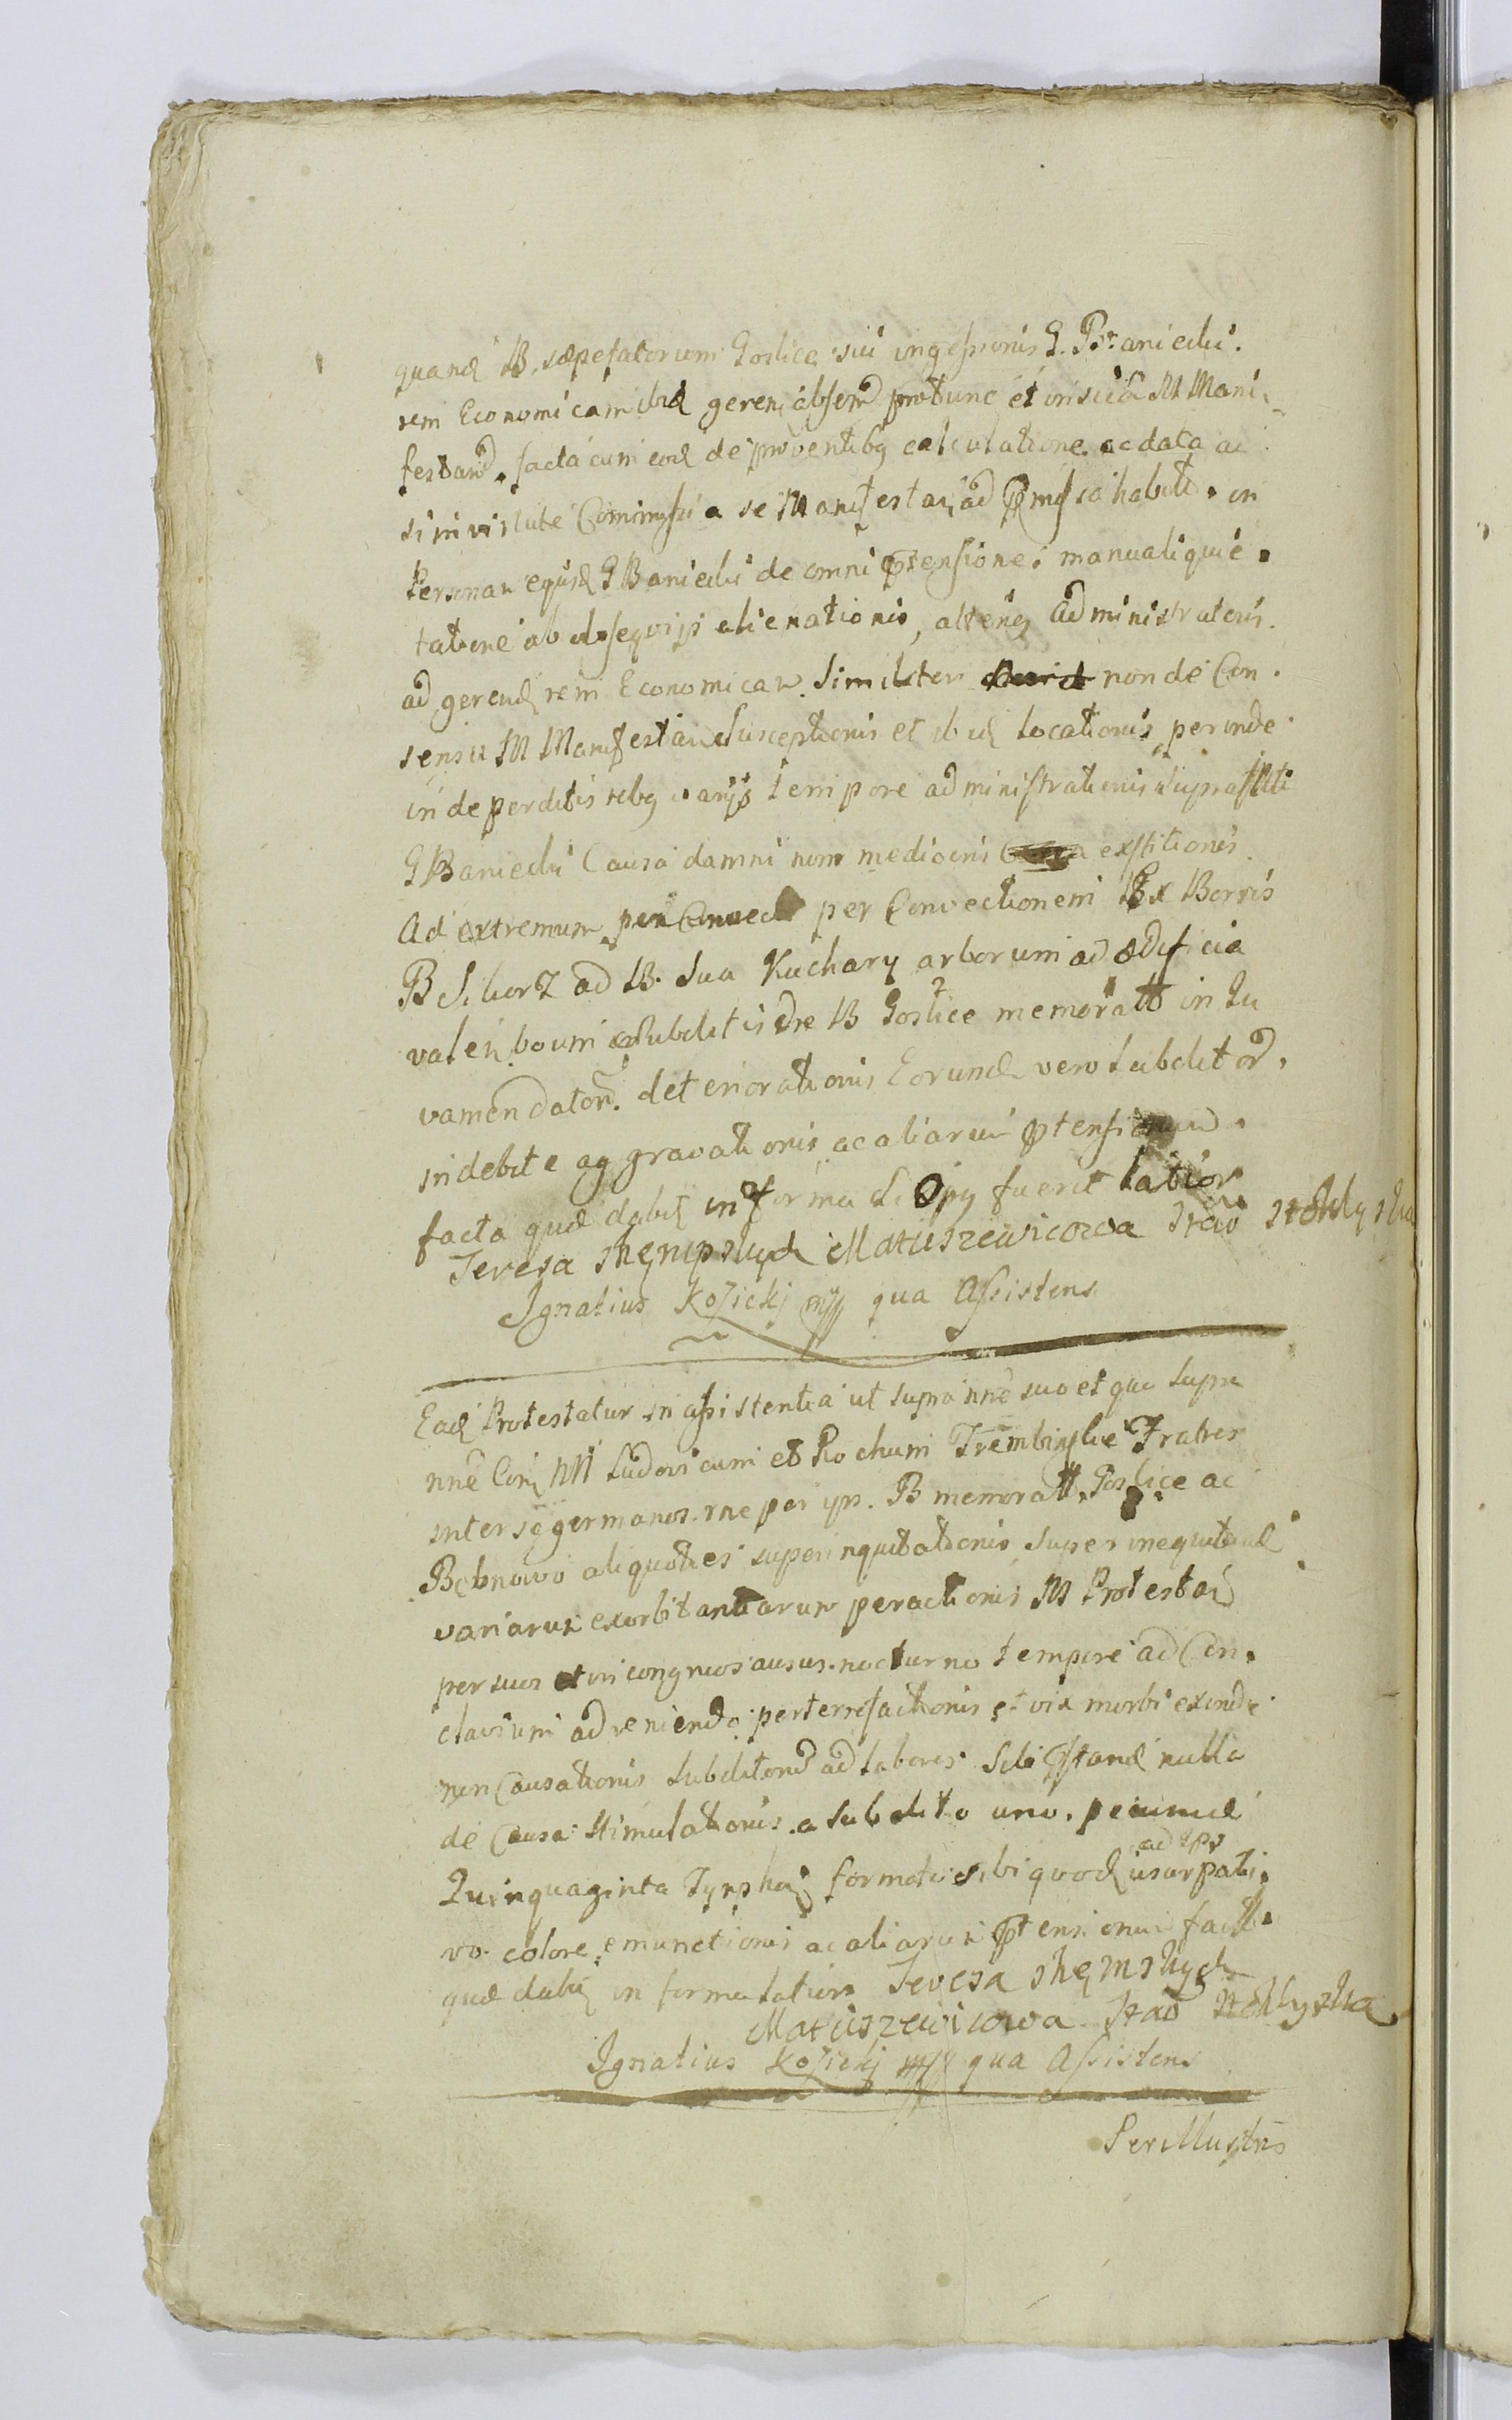 quand B. sæpefatorum Goslice sui ingessionis G. Baniecki.
rem Economicam ibid gerenₜ absenₜ protunc et inscia M Mani-
festanₜ. facta cum eod de proventibꝫ calculatione ac data ac
si in virtute Commissi a se Manifestanₜ ad præmissa habita. in
Personam ejusd G Baniecki de omni prætensione manuali quie-
tatione ab obsequijs alienationis, alterius administratoris
ad gerend rem Economicam similiter non de Con-
sensu M Manifestan susceptionis et ibid locationis perinde
in deperditis rebꝫ varijs tempore administrationis suprafati
G Baniecki Causa damni non mediocris exstitionis
Ad extremum per Convec per Convectionem Ex Borris
B Siborz ad B. sua Kuchary arborum ad ædificia
valen boum subditis dre B Goslice memoratt in Iu
vamen dator. deteriorationis Eorund vero subditor.
indebite aggravationis ac aliarum prætensionum.
facta quæ dabit in forma si opus fuerit latior
Teresa Skempskych Matuszewicowa Stao Stoklyska
Ignatius Kozicki mp qua Assistens
Ead Protestatur in assistentia ut supra nne suo et quo supra
nne Conₜ NN Ludovicum et Rochum Trembinskie Fratres
inter se germanos. rne per ips. B memoratt. Goslice ac
Bobnowo aliquoties superinquitationis super inequitand
variarum exorbitantiarum peractionis M Protestan
per suos et incongruos ausus. nocturno tempore ad Con-
clavium adveniendo perterrefactionis et vix morbi exinde
non Causationis subditord ad labores sibi præstand nulla
de Causa stimulationis. a subdito uno. pecuniæ
Quinquaginta Tynphonₜ formati sibi quod ad ips usurpati-
vo colore emunctionis ac aliarum prætensionum fact.
quæ dabit in forma latiori Teresa Skęmskych
Matuszewicowa Stao Stoklyska
Ignatius Kozicki mp qua Assistens
Perillustris